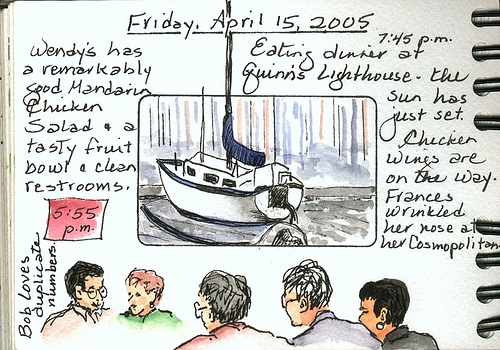 Friday, April 15, 2005
Wendy's has
a remarkably
good Mandarin
Chicken
Salad & a
tasty fruit
bowl & clean
restrooms.
5:55
p.m.
Bob Loves
duplicate
numbers.
7:45 p.m.
Eating dinner at
Quinn's Lighthouse - the
sun has
just set.
Chicken
wings are
on the way.
Frances
wrinkled
her nose at
her Cosmopolitan